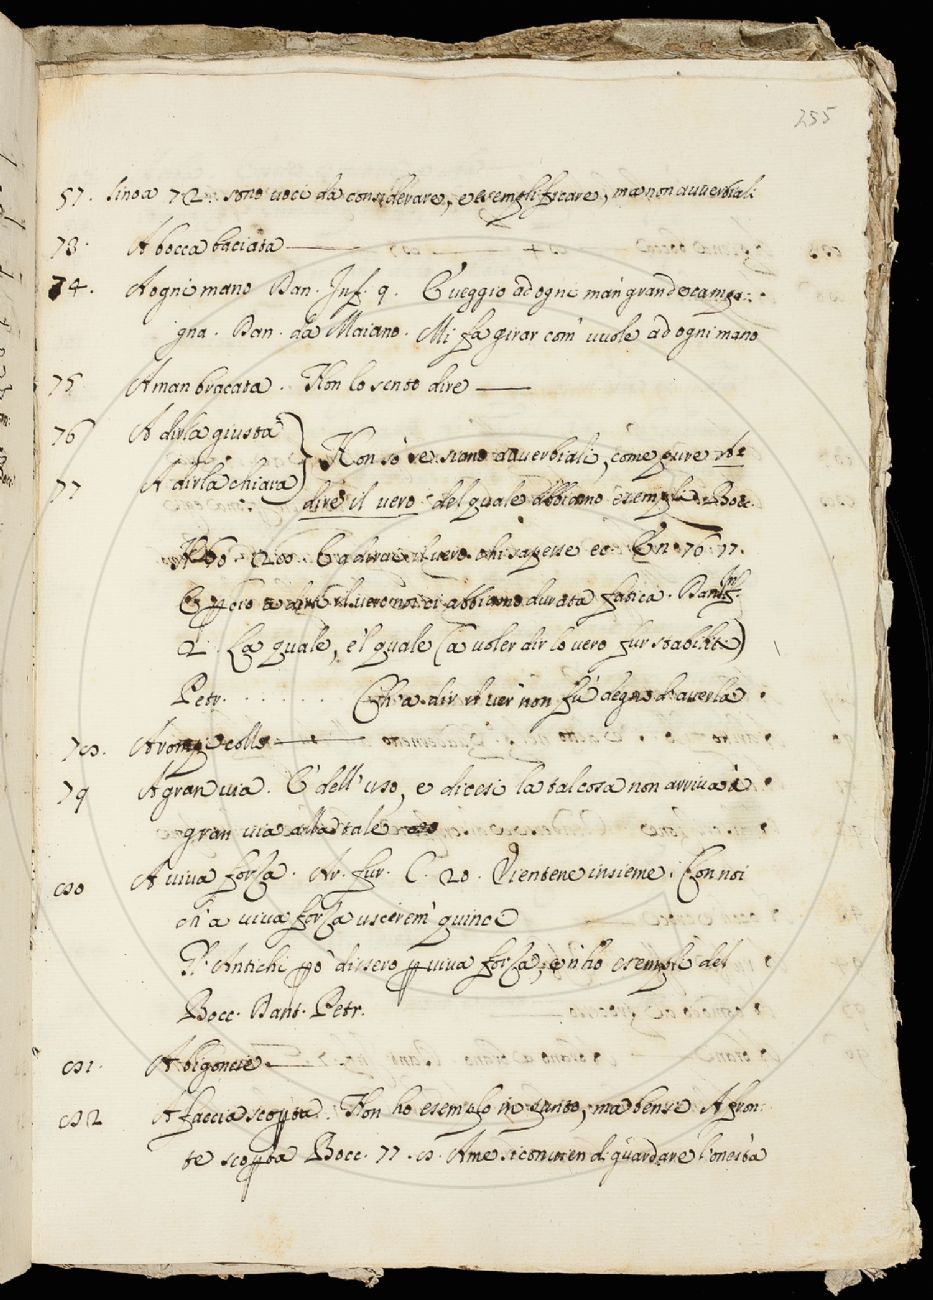 255
57. sino a 72. sono voci da considerare, e esemplificare, ma non avverbiali
73. A bocca baciata
74. A ogni mano Dan. Inf. 9. E veggio ad ogni man grande campa:
gna. Dan. da Maiano. Mi fa girar com' vuole ad ogni mano
75 A man bracata. Non lo sento dire
76 A dirla giusta
77 A dirla chiara } Non sò se siano avverbiali, come pure
dire il vero del quale abbiamo esempli. Bocc.
E a dirne il vero chi sapesse ec. En. 76. 17.
E però a dirti il vero noi ci abbiamo durata fatica. Dant. Inf.
2. La quale, e'l quale (a voler dir lo vero fur stabilite)
Petr. . . . . . Ch'a dir il ver non fù degno d'averla.
78. A rompicollo
79 A gran via. E' dell' uso, e dicesi la tal cosa non arriva à
gran via alla tale
80 A viva forza. Ar. fur. C. 20. Vientene insieme. Con noi
ch' a viva forza uscirem' quince
Gl' Antichi però dissero per viva forza, e n'hò esempli del
Bocc. Dant. Petr.
81. A bigonce
82 A faccia scoperta. Non ho esemplo in punto, ma bensì A fron:
te scoperta Bocc. 77. 8. A me si convien di guardare l'onestà